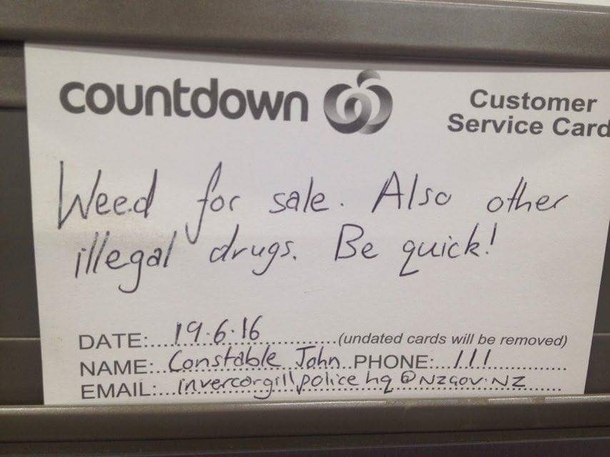 countdown
Customer
Service Card
Weed for sale. Also other
illegal drugs. Be quick!
DATE:...19.6.16...(undated cards will be removed)
NAME:..Constable John..PHONE:..111...
EMAIL:...invercorgillpolicehq@NZGOV.NZ